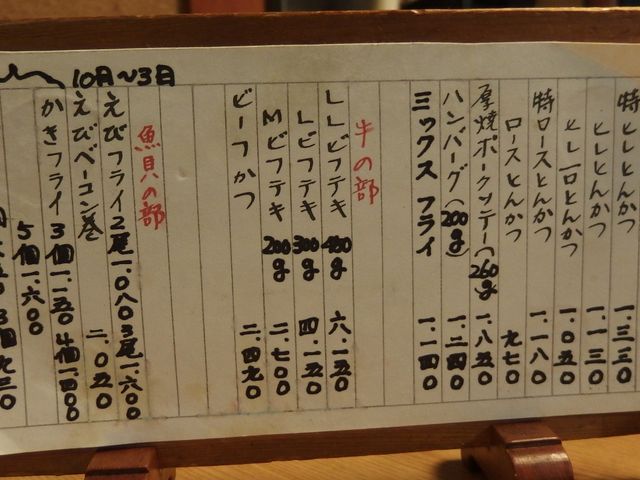 特ヒレとんかつ 一.三三〇
ヒレとんかつ 一.一三〇
ヒレ一口とんかつ 一.〇五〇
特ロースとんかつ 一.一八〇
ロースとんかつ 九七〇
厚焼ポークソテー(260g) 一.八五〇
ハンバーグ(200g) 一.二四〇
ミックスフライ 一.一四〇
牛の部
LLビフテキ 400g 六.一五〇
Lビフテキ 300g 四.一五〇
Mビフテキ 200g 二.七〇〇
ビーフかつ 二.四九〇
魚貝の部
えびフライ2尾一.〇八〇3尾一.六〇〇
えびベーコン巻 二.〇五〇
かきフライ3個一.一五〇4個一.四〇〇
10月〜3月
5個一.六〇〇
3個九三〇